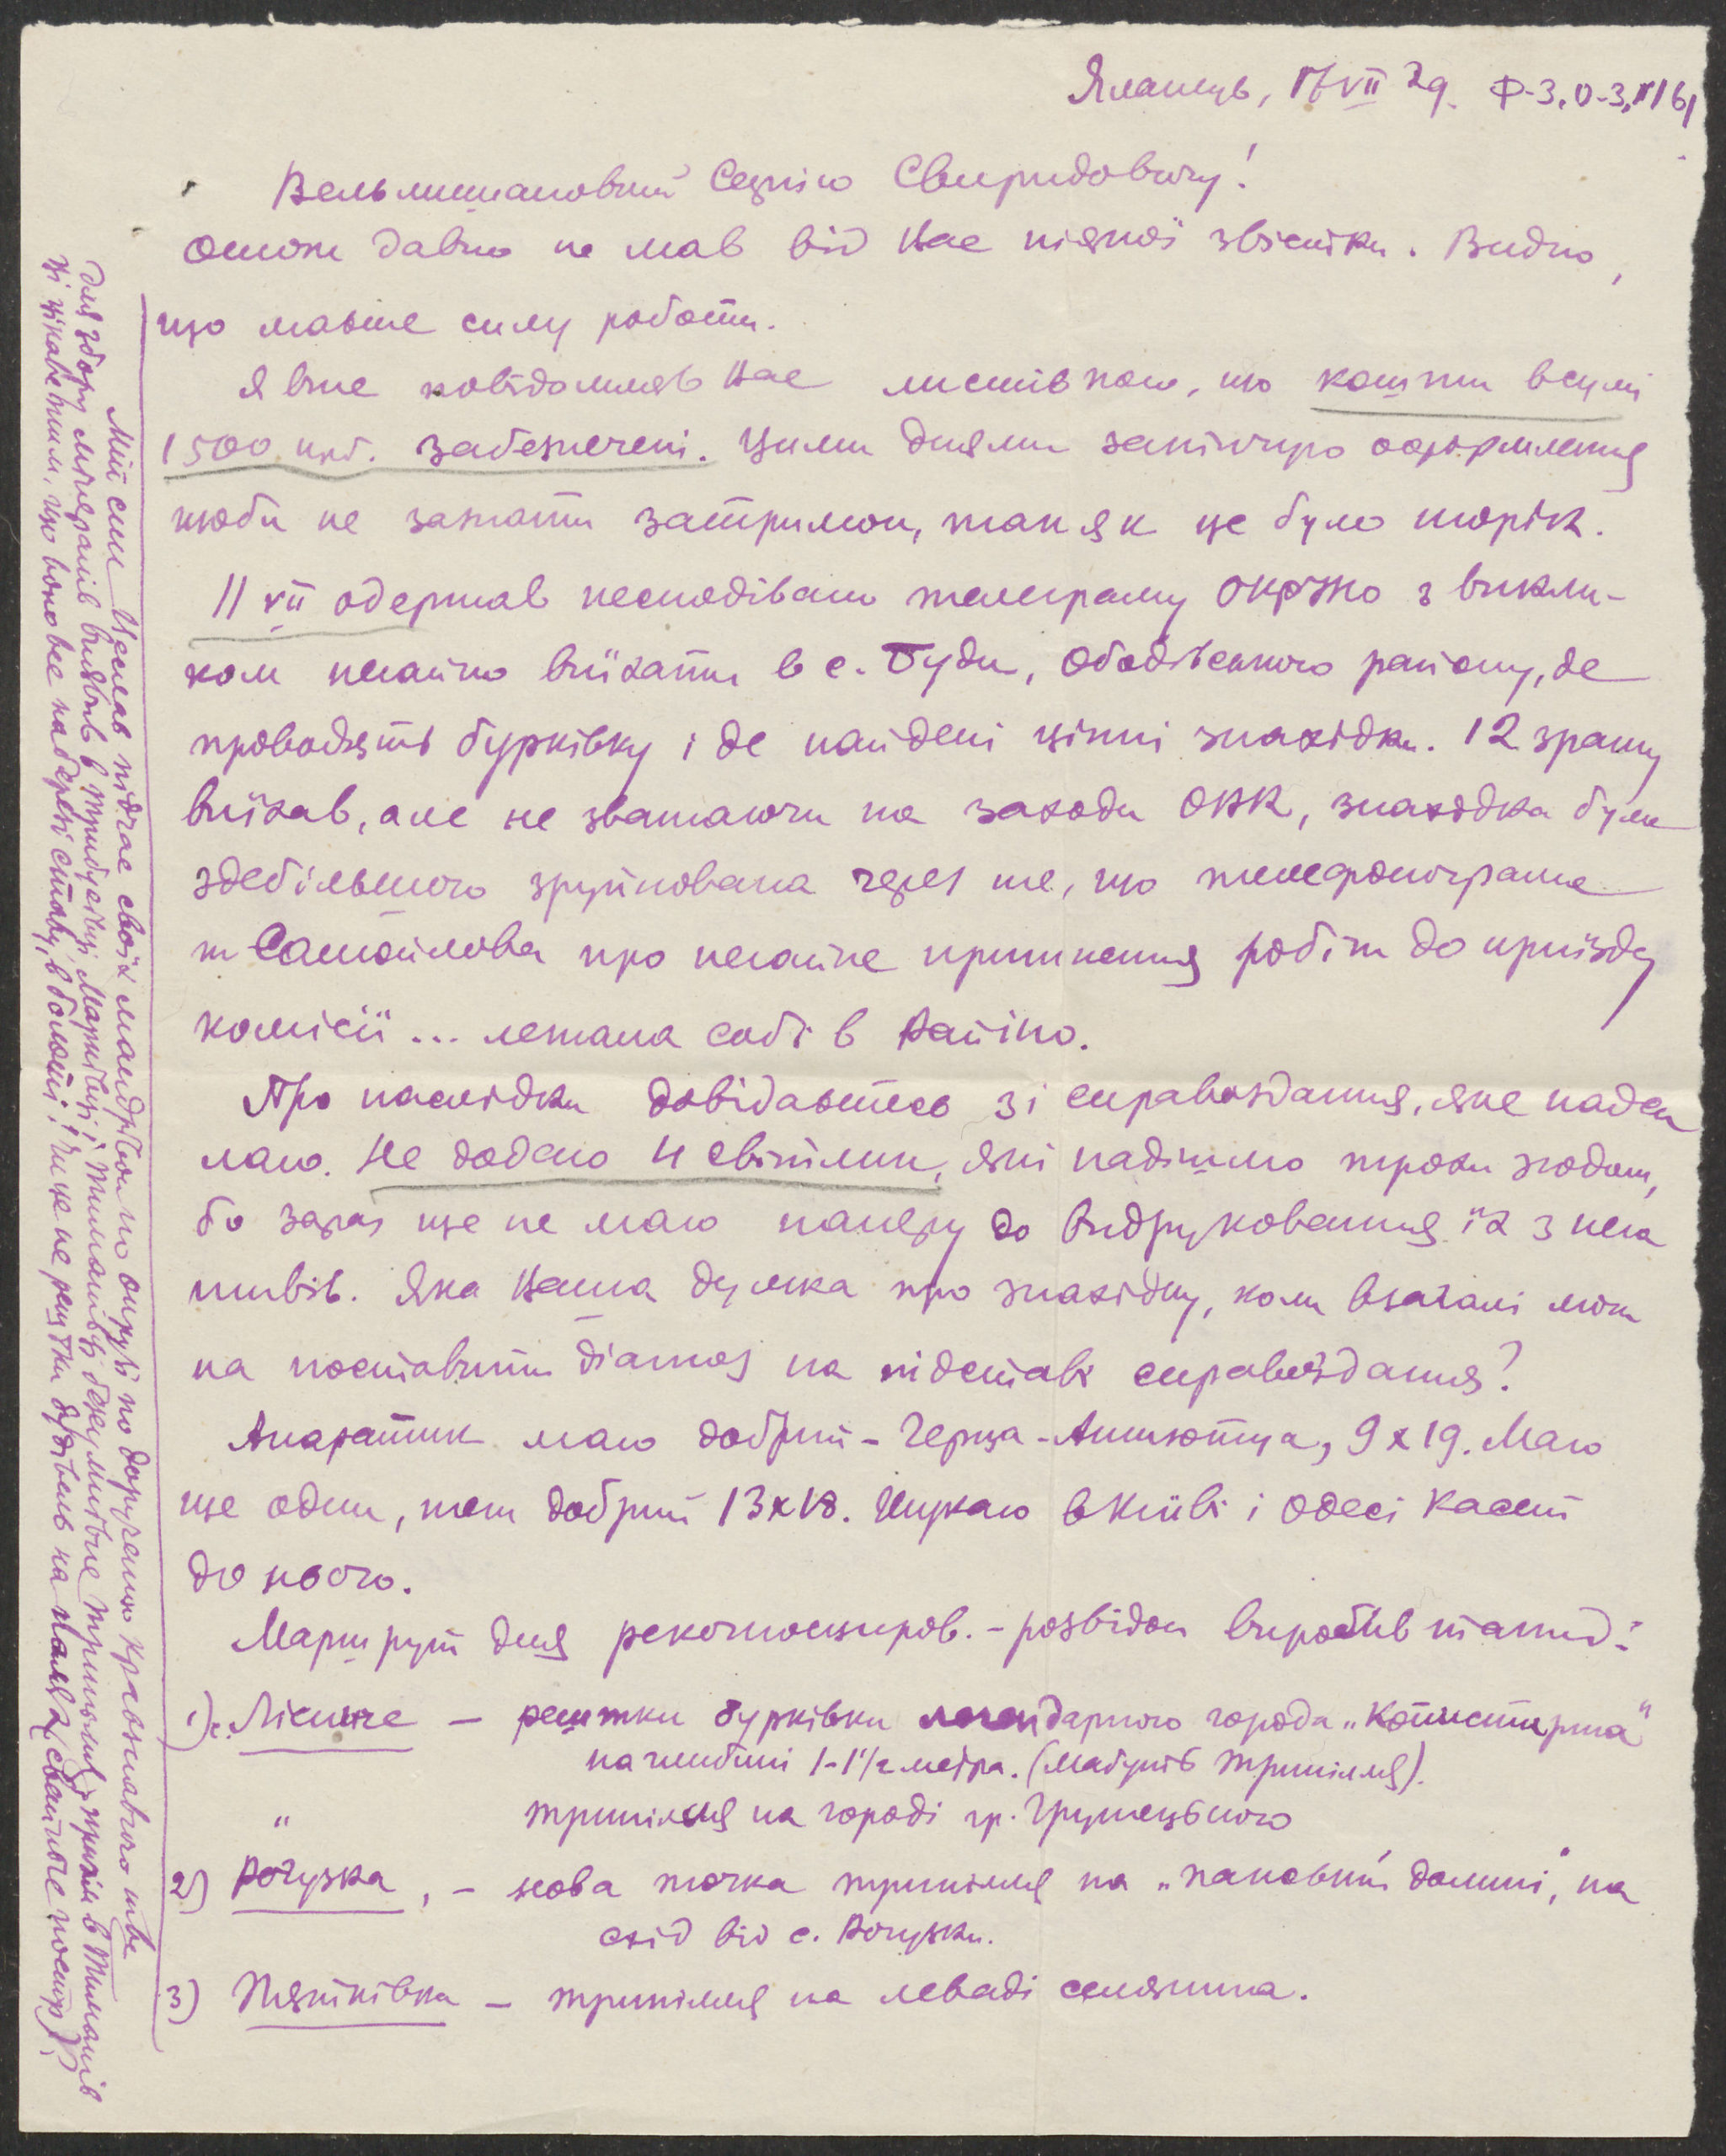 Яланець, 17 VII 29. Ф-3, О-3, №161
Вельмишановний Сергію Свиридовичу!
Отож давно не мав від Вас ніякої звістки. Видно,
що маєте силу роботи.
Я вже повідомляв Вас листівкою, що кошти в сумі
1500 крб. забезпечені. Цими днями закінчую оформлення
щоби не зазнати затримки, так як це було торік.
11 VII одержав несподівано телеграму Окрвно з викли-
ком негайно виїхати в с. Буди, Ободівського району, де
провадять бурківку і де найдені цінні знахідки. 12 зранку
виїхав, але не зважаючи на заходи ОВК, знахідка була
здебільшого зруйнована через те, що телефонограма
т Самойлова про негайне припинення робіт до приїзду
комісії ... лежала собі в Райвно.
Про наслідки довідаєтесь зі справоздання, яке надси
лаю. Не додаю 4 світлини, які надішлю трохи згодом,
бо зараз ще не маю паперу до видруковання їх з нега
тивів. Яка Ваша думка про знахідку, коли взагалі мож
на поставити діагноз на підставі справоздання?
Апаратик маю добрий - Герца-Аншютца, 9 х 19. Маю
ще один, теж добрий 13х18. Шукаю в Київі і Одесі касет
до нього.
Маршрут для рекогносциров. - розвідок виробив такий:
1) с. Лісниче — рештки бурківки легендарного города „Копистирка"
на глибині 1-1½ метра. (Мабуть Трипілля).
" трипілля на городі гр. Грушецького
2) Рогузка, — нова точка трипілля на „пановій долині", на
схід від с. Рогузки.
3) Пятківка — трипілля на леваді селянина.
Мій син Чеслав підчас своїх мандрівок по округі по дорученню краєзнавчого т-ва
для збору матеріалів виявив в Трибусівці, Марківці і Тиманівці безсумнівне трипілля, причім в Тиманів
ці цікаве тим, що воно все на березі ставу, в болоті. Чи це не рештки будівель на палях (свайные постр.)?